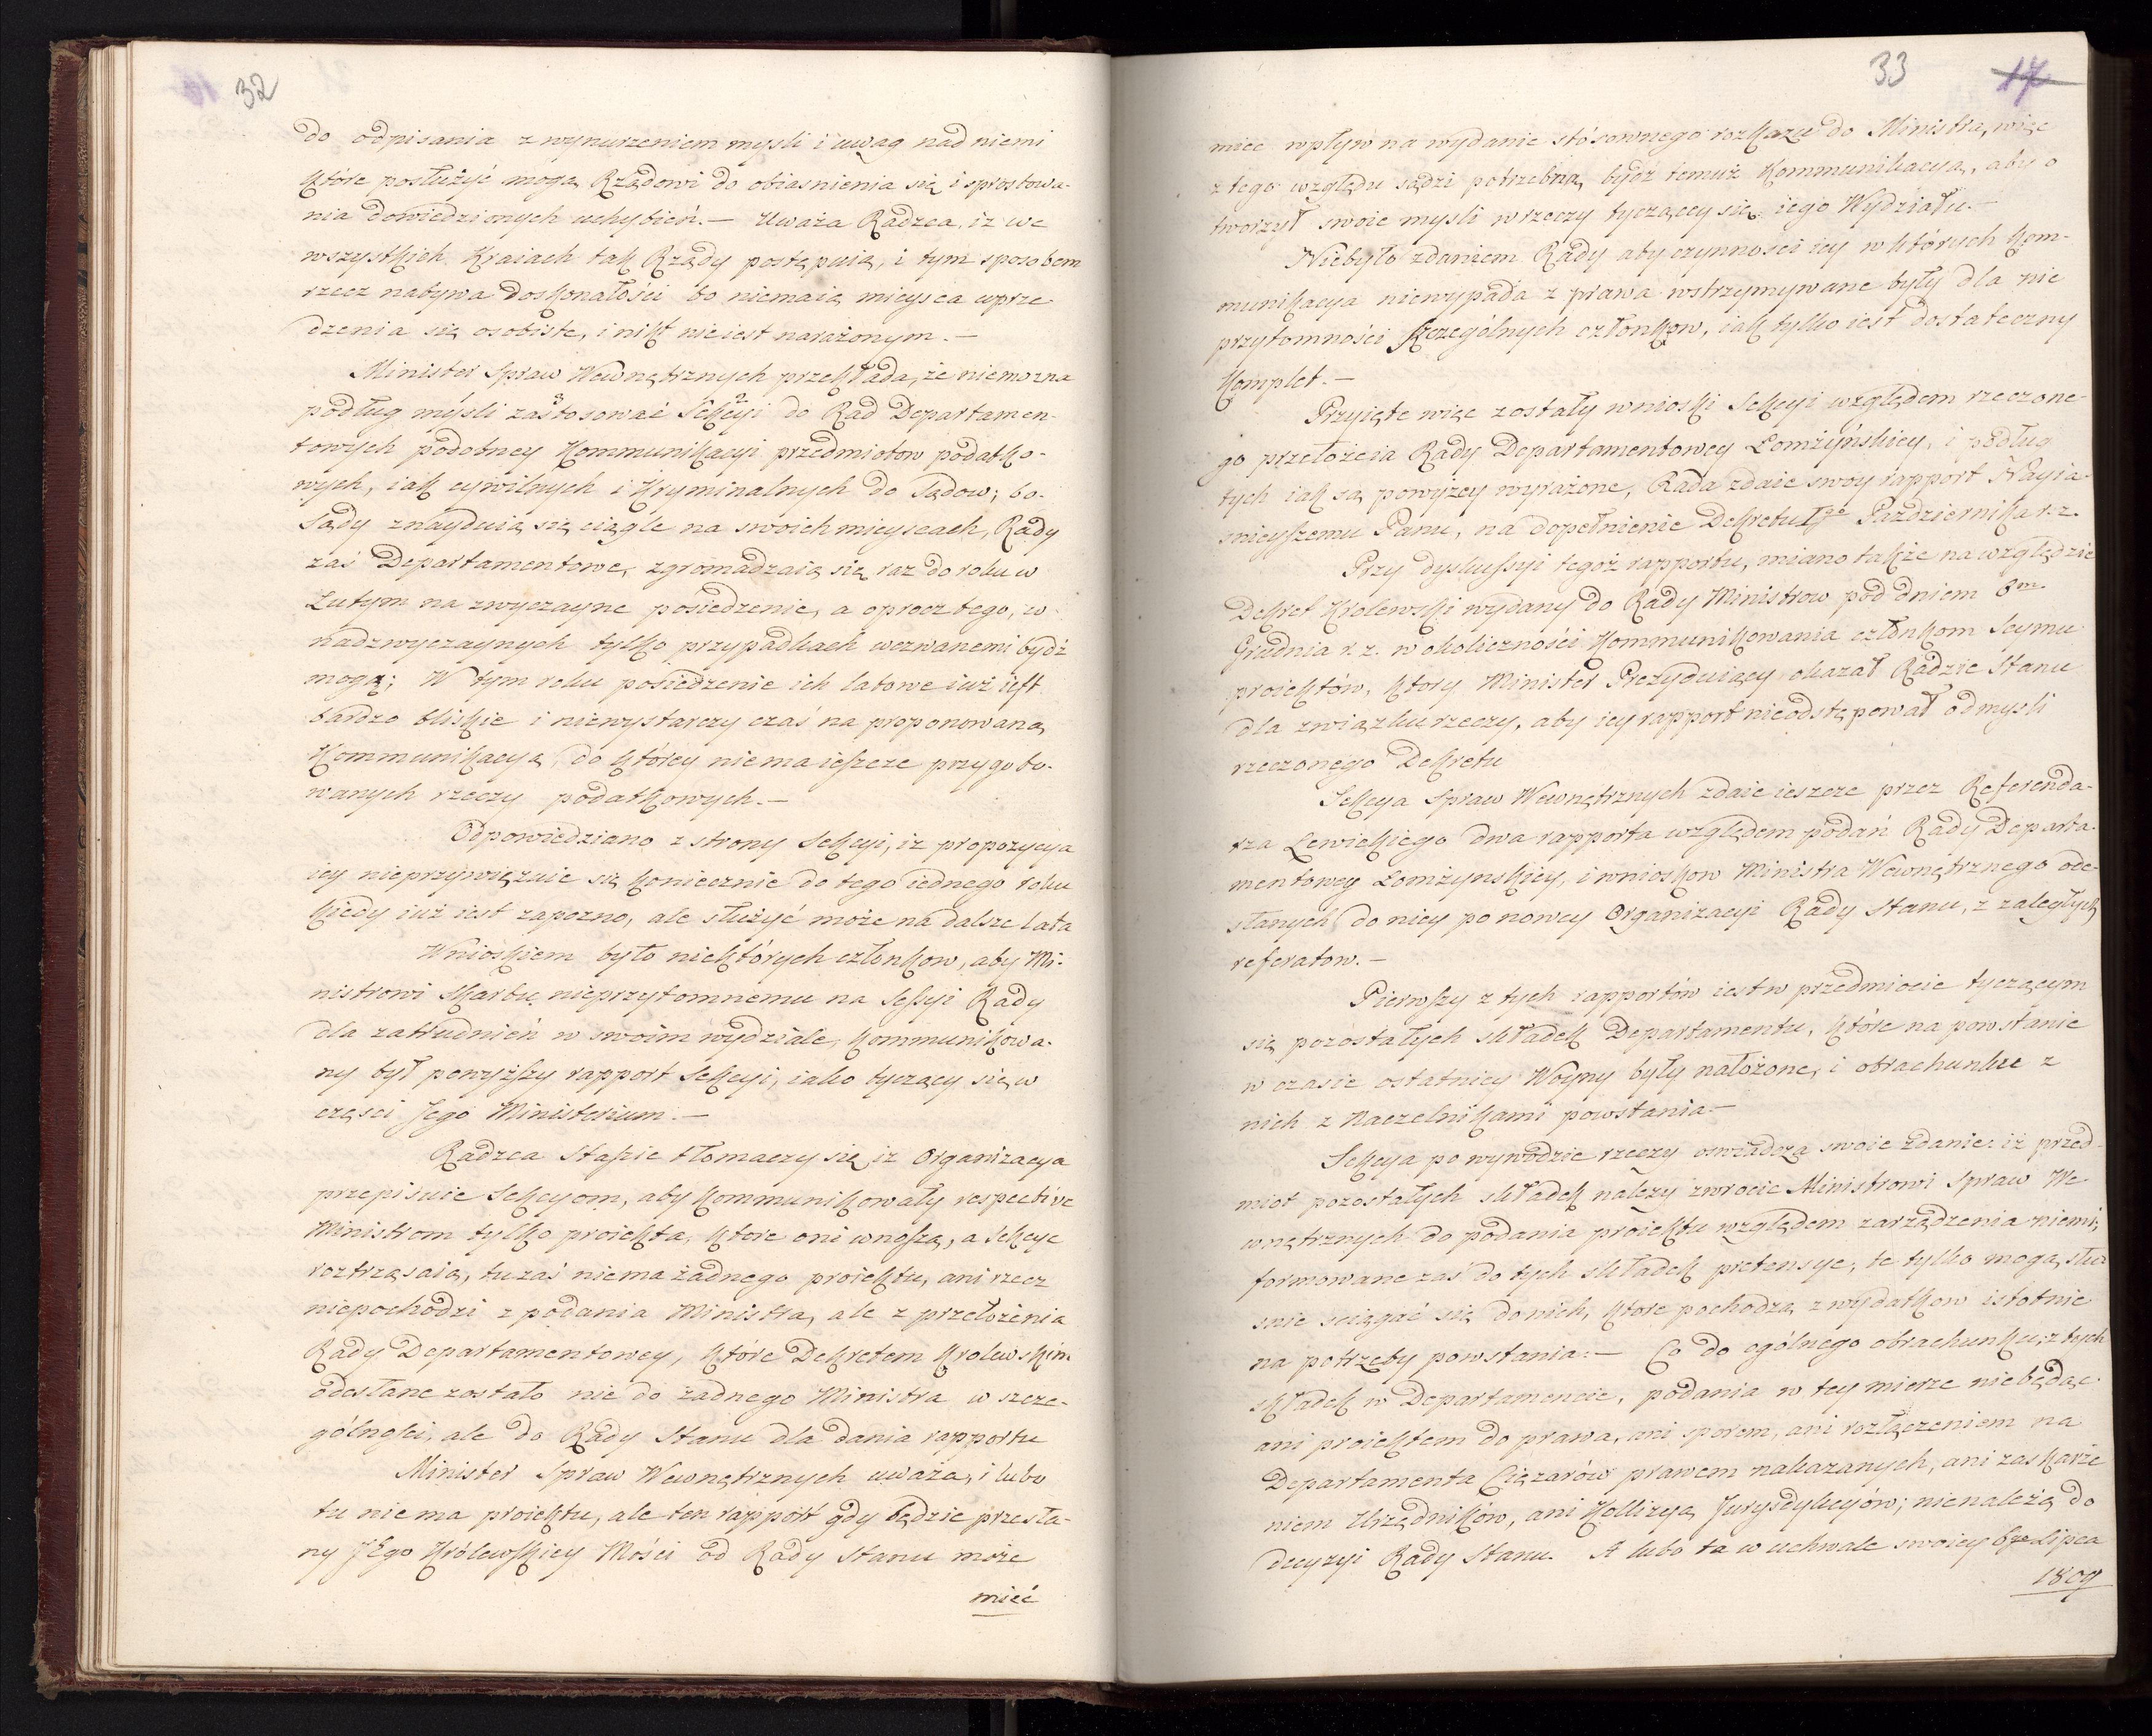 32
do odpisania z wynurzeniem mysli i uwag nad niemi
które posłużyć mogą Rządowi do obiasnienia się i sprostowa-
nia dowiedzionych uchybień.— Uważa Radzca, iż we
wszystkich Kraiach tak Rządy postępuią, i tym sposobem
rzecz nabywa doskonałości bo niemaią mieysca uprze-
dzenia się osobiste, i nikt nie iest narażonym.—
Minister Spraw Wewnętrznych przekłada, że niemożna
podług mysli zastosować Sekcyi do Rad Departamen-
towych podobney Kommunikacyi przedmiotow podatko-
wych, iak cywilnych i Kryminalnych do Sądow; bo-
Sądy znayduią się ciągle na swoich mieyscach, Rady
zaś Departamentowe, zgromadzaią się raz do roku w
Lutym na zwyczayne posiedzenie, a oprocz tego, w
nadzwyczaynych tylko przypadkach wezwanemi bydź
mogą; W tym roku posiedzenie ich latowe iuż iest
bardzo bliskie i niewystarczy czas na proponowaną
Kommunikacyą, do którey niema ieszcze przygoto-
wanych rzeczy podatkowych.—
Odpowiedziano z strony Sekcyi, iż propozycya
iey nieprzywięzuie się koniecznie do tego iednego roku
kiedy iuż iest zapozno, ale służyć może na dalsze lata
Wnioskiem było niektórych członkow, aby Mi-
nistrowi Skarbu nieprzytomnemu na Sessyi Rady
dla zatrudnień w swoim wydziale, kommunikowa-
ny był powyższy rapport Sekcyi, iako tyczący się w
części Jego Ministerium.—
Radzca Staszic tłomaczy się iż Organizacya
przepisuie Sekcyom, aby kommunikowały respective
Ministrom tylko proiekta, ktore oni wnoszą, a Sekcye
roztrząsaią, tu zaś niema żadnego proiektu, ani rzecz
niepochodzi z podania Ministra, ale z przełożenia
Rady Departamentowey, które Dekretem Krolewskim
odesłane zostało nie do żadnego Ministra w szcze-
gólności, ale do Rady Stanu dla dania rapportu
Minister Spraw Wewnętrznych uważa, i lubo
tu niema proiektu, ale ten rapport gdy będzie przesła-
ny JEgo Królewskiey Mości od Rady Stanu może
mieć
33
17
miec wpływ na wydanie stósownego rozkazu do Ministra, więc
z tego względu sądzi potrzebną bydz temuż Kommunikacyą, aby o
tworzył swoie mysli w rzeczy tyczącey się iego Wydziału.—
Niebyło zdaniem Rady aby czynności iey w których kom-
munikacya niewypada z prawa wstrzymywane były dla nie
przytomności szczególnych członkow, iak tylko iest dostateczny
Komplet.—
Przyięte więc zostały wnioski Sekcyi względem rzeczone-
go przełożeia Rady Departamentowey Łomżyńskiey, i podług
tych iak są powyżey wyrażone, Rada zdaie swoy rapport Nayia-
snieyszemu Panu, na dopełnienie Dekretu 1go Pazdziernika r. z.
Przy dyskussyi tegoż rapportu, miano także na względzie
Dekret Krolewski wydany do Rady Ministrow pod dniem 8m
Grudnia r. z. w okoliczności Kommunikowania członkom Seymu
proiektów, ktory Minister Prezyduiący okazał Radzie Stanu
dla związku rzeczy, aby iey rapport nieodstępował od mysli
rzeczonego Dekretu
Sekcya Spraw Wewnętrznych zdaie ieszcze przez Referenda-
rza Lewickiego dwa rapporta względem podań Rady Departa-
mentowey Łomżynskiey, i wnioskow Ministra Wewnętrznego ode-
słanych do niey po nowey Organizacyi Rady Stanu, z zaległych
referatow.—
Pierwszy z tych rapportów iest w przedmiocie tyczącym
się pozostałych składek Departamentu, które na powstanie
w czasie ostatniey Woyny były nałożone, i obrachunku z
nich z Naczelnikami powstania.—
Sekcya po wywodzie rzeczy oswiadcza swoie zdanie: iż przed-
miot pozostałych składek należy zwrocic Ministrowi Spraw We-
wnętrznych do podania proiektu względem zarządzenia niemi,
formowane zaś do tych składek pretensye, te tylko mogą słu-
snie sciągać się do nich, ktore pochodzą z wydatkow istotnie
na potrzeby powstania.— Co do ogólnego obrachunku z tych
składek w Departamencie, podania w tey mierze niebędąc
ani proiektem do prawa, ani sporem, ani rozłączeniem na
Departamenta Ciężarów prawem nakazanych, ani zaskarże
niem Urzędników, ani Kollizyą Jurysdykcyów; nienależą do
decyzyi Rady Stanu. A lubo ta w uchwale swoiey 6go Lipca
1809